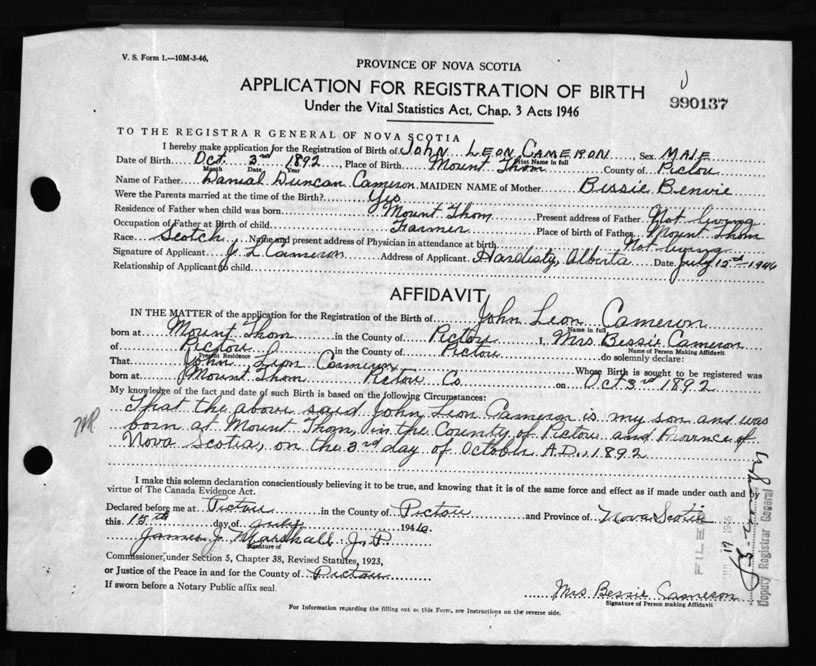 V. S. Form 1.—10M-3-46,
PROVINCE OF NOVA SCOTIA
APPLICATION FOR REGISTRATION OF BIRTH
990137
Under the Vital Statistics Act, Chap. 3 Acts 1946
TO THE REGISTRAR GENERAL OF NOVA SCOTIA
I hereby make application for the Registration of Birth of John Leon Cameron, Sex Male
Print Name in full
Date of Birth Oct. 3rd 1892, Place of Birth Mount Thom County of Pictou
Month Day Year
Name of Father Danial Duncan Cameron MAIDEN NAME of Mother Bessie Benvie
Were the Parents married at the time of the Birth? Yes
Residence of Father when child was born Mount Thom Present address of Father Not living
Occupation of Father at Birth of child Farmer Place of birth of Father Mount Thom
Race Scotch, Name and present address of Physician in attendance at birth Not living
Signature of Applicant J. L. Cameron Address of Applicant Hardisty, Alberta Date July 15th 1946
Relationship of Applicant to child
AFFIDAVIT
IN THE MATTER of the application for the Registration of the Birth of John Leon Cameron
Name in full
born at Mount Thom in the County of Pictou I, Mrs. Bessie Cameron
Name of Person Making Affidavit
of Pictou in the County of Pictou do solemnly declare:
Present Residence
That John Leon Cameron Whose Birth is sought to be registered was
born at Mount Thom Pictou Co on Oct 3rd 1892
My knowledge of the fact and date of such Birth is based on the following Circumstances:
That the above said John Leon Cameron is my son and was
born at Mount Thom, in the County of Pictou and Province of
Nova Scotia, on the 3rd day of October A.D., 1892
I make this solemn declaration conscientiously believing it to be true, and knowing that it is of the same force and effect as if made under oath and by
virtue of The Canada Evidence Act.
Declared before me at Pictou in the County of Pictou and Province of Nova Scotia
this 15th day of July 1946.
James J. Marshall J. P.
Signature of
Commissioner, under Section 5, Chapter 38, Revised Statutes, 1923,
or Justice of the Peace in and for the County of Pictou
If sworn before a Notary Public affix seal.
Mrs Bessie Cameron
Signature of Person making Affidavit
For Information regarding the filling out of this Form, see Instructions on the reverse side.
FILED
Deputy Registrar General